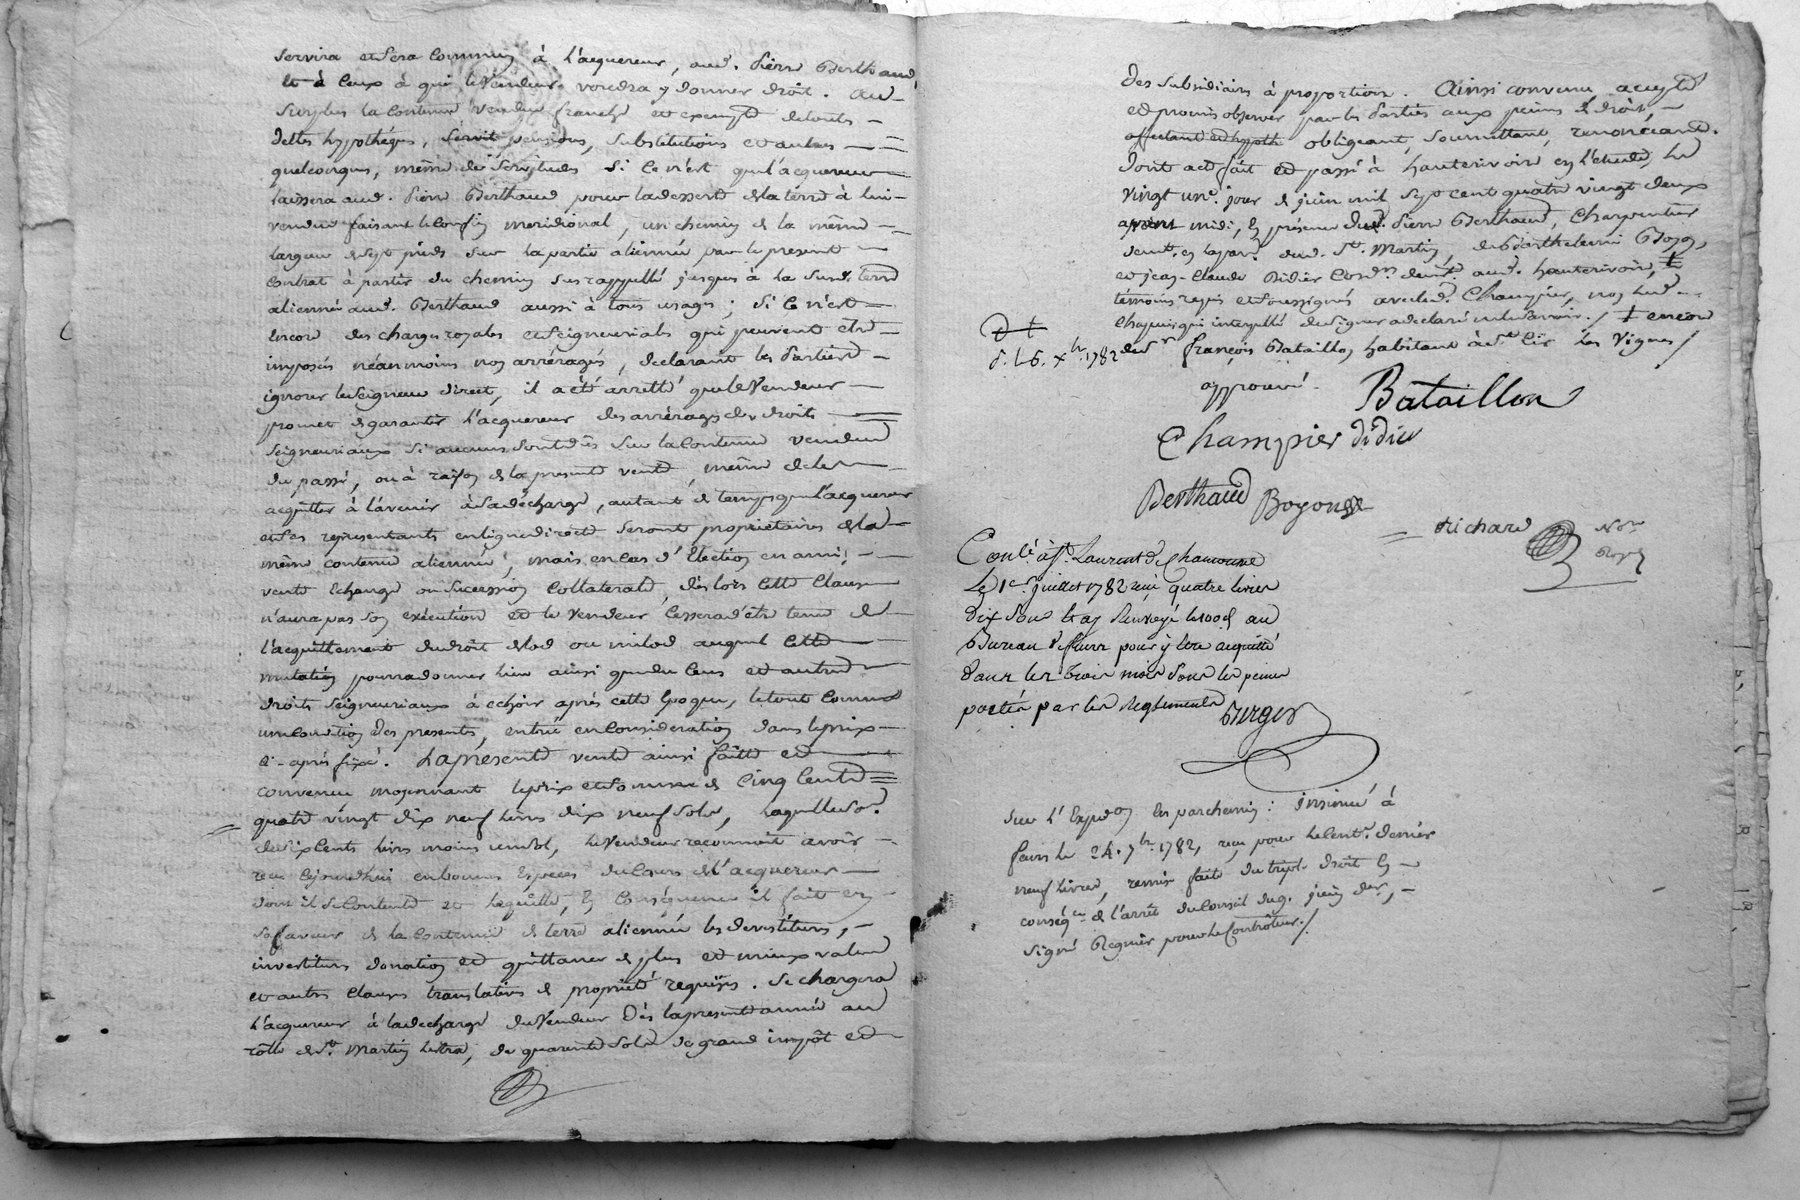 servira et sera commun à l'acquereur, aud. Pierre Berthaud
et à ceux à qui le Vendeur voudra y donner droit. au
surplus la contenue vendue franche et exempte de touts
dettes hypothéques, servis pensions, substitutions et autres
quelconques, même de servitudes si ce n'est que l'acquereur
laissera aud. Pierre Berthaud pour la desserte de la terre à lui
vendue faisant le confin meridional, un chemin de la même
largeur de sept pieds sur la partie alienée par le present
contrat à partir du chemin sus rappellé jusques à la susd. terre
alienée aud. Berthaud aussi à tous usages; si ce n'est
encore des charges royales et seigneuriales qui peuvent etre
imposés néanmoins non arréragés, declarant les Parties
ignorer le seigneur direct, il a été arretté que le Vendeur
promet de garantir l'acquereur des arrérages des droits
seigneuriaux si aucuns sont dûs sur la contenue vendue
du passé, ou à raison de la presente vente, même de les
acquitter à l'avenir à sa décharge, autant de temps que l'acquereur
et ses representants en ligne directe seront proprietaires de la
même contenue alienée, mais en cas d'Election en ami,
vente Echange ou succession collaterale, dès lors cette clause
n'aura pas son exécution et le vendeur cessera d'être tenu de
l'acquittement du droit de lod ou milod auquel cette
mutation pourra donner lieu ainsi que du cens et autres
droits seigneuriaux à echoir après cette Epoque, le tout comme
une condition des presentes, entrée en consideration dans le prix
ci-après fixé. La presente vente ainsi faitte et
convenue moyennant le prix et somme de cinq cents
quatre vingt dix neuf livres dix neuf sols, laquelle so.e
de six cents livres moins un sol, le Vendeur reconnoit avoir
reçu cejourdhui en bonnes Especes du cours de l'acquereur
dont il se contente et le quitte, En conséquence il fait en
sa faveur de la contenue de terre alienée les devestitures,
investitures donation et quittance de plus et mieux value
et autres clauses translatives de propriété requises. se chargera
l'acquereur à la decharge du Vendeur Dès la presente année au
rôlle de St. Martin Lestra, de quarente sols de grand impôt et
des subsidiaires à proportion. Ainsi convenu accepté
et promis observer par les Parties aux peines de droit,
affectant et hypoth obligeant, soumettant, renonceant.
Dont acte fait et passé à hauterivoire en l'étude, le
vingt un.e jour de juin mil sept cent quatre vingt deux
avant midi, En présence dud. Pierre Berthaud, Charpentier
demt. en la par. dud. St. Martin, de Barthelemi Boyon,
et jean-Claude Didier Cord.r demt. aud. hauterivoire,
temoins requis et soussignés avec led. Champier, non led.
Chapuis qui interpellé de signer a declaré ne le savoir./ ‡ encore
de Sr. françois Bataillon habitant à St. Cir les Vignes /
approuvé.
Bataillon
Champier didier
Berthaud Boyon
Richard Not.re
Royal
Conlé. à St. Laurent de Chamousset
Le 1er. juillet 1782 reçu quatre livres
dix sous et ay Renvoyé le 100e au
Bureau de feurs pour y etre acquitté
dans les trois mois sous les peines
portées par les Reglements
Sur l'Expedon. En parchemin: insinué à
feurs le 24. 7bre. 1782, reçu pour le cent.e denier
neuf livres, remise faite du triple droit En
conséq.ce de l'arrêt du Conseil du 9. juin der.,
signé Regnier pour le Controlleur./